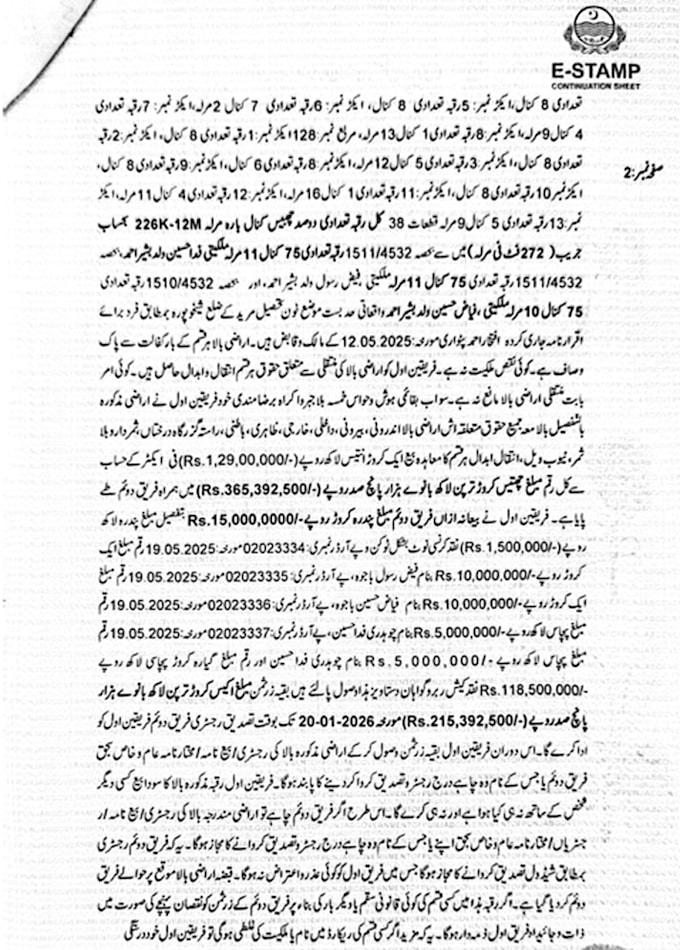 E-STAMP
CONTINUATION SHEET
صفحہ نمبر:2
تعدادی 8 کنال، ایکڑ نمبر: 5 رقبہ تعدادی 8 کنال، ایکڑ نمبر: 6 رقبہ تعدادی 7 کنال 2 مرلہ، ایکڑ نمبر: 7 رقبہ تعدادی
4 کنال 9 مرلہ، ایکڑ نمبر: 8 رقبہ تعدادی 1 کنال 13 مرلہ، مربع نمبر: 128 ایکڑ نمبر: 1 رقبہ تعدادی 8 کنال، ایکڑ نمبر: 2 رقبہ
تعدادی 8 کنال، ایکڑ نمبر: 3 رقبہ تعدادی 5 کنال 12 مرلہ، ایکڑ نمبر: 8 رقبہ تعدادی 6 کنال، ایکڑ نمبر: 9 رقبہ تعدادی 8 کنال،
ایکڑ نمبر 10 رقبہ تعدادی 8 کنال، ایکڑ نمبر: 11 رقبہ تعدادی 1 کنال 16 مرلہ، ایکڑ نمبر: 12 رقبہ تعدادی 4 کنال 11 مرلہ، ایکڑ
نمبر: 13 رقبہ تعدادی 5 کنال 9 مرلہ قطعات 38 کل رقبہ تعدادی دوصد چھبیس کنال بارہ مرلہ 226K-12M بحساب
جریب (272 فٹ فی مرلہ) میں سے بحصہ 1511/4532 رقبہ تعدادی 75 کنال 11 مرلہ ملکیتی فدا حسین ولد بشیر احمد، بحصہ
1511/4532 رقبہ تعدادی 75 کنال 11 مرلہ ملکیتی فیض رسول ولد بشیر احمد، اور بحصہ 1510/4532 رقبہ تعدادی
75 کنال 10 مرلہ ملکیتی، فیاض حسین ولد بشیر احمد واقعاتی حد بست موضع نون تحصیل مرید کے ضلع شیخوپورہ بمطابق فرد برائے
اقرار نامہ جاری کردہ افتخار احمد پٹواری مورخہ: 12.05.2025 کے مالک و قابض ہیں۔ اراضی بالا ہر قسم کے بار کفالت سے پاک
وصاف ہے۔ کوئی نقص ملکیت نہ ہے۔ فریقین اول کو اراضی بالا کی منتقلی سے متعلق حقوق ہر قسم انتقال و ابدال حاصل ہیں۔ کوئی امر
بابت منتقلی اراضی بالا مانع نہ ہے۔ سواب بقائمی ہوش و حواس خمسہ بلا جبر و اکراہ برضا مندی خود فریقین اول نے اراضی مذکورہ
بالتفصیل بالا معہ جمیع حقوق متعلقہ اش اراضی بالا اندرونی، بیرونی، داخلی، خارجی، ظاہری، باطنی، راستہ گزرگاہ درختاں ثمردار و بلا
ثمر، ٹیوب ویل، انتقال ابدال ہر قسم کا معاہدہ بیع ایک کروڑ انتیس لاکھ روپے (-/Rs.1,29,00,000) فی ایکڑ کے حساب
سے کل رقم مبلغ چھتیس کروڑ ترپن لاکھ بانوے ہزار پانچ صد روپے (-/Rs.365,392,500) میں ہمراہ فریق دوئم طے
پایا ہے۔ فریقین اول نے بیعانہ ازاں فریق دوئم مبلغ پندرہ کروڑ روپے -/Rs.15,000,0000 بتفصیل مبلغ پندرہ لاکھ
روپے (-/Rs.1,500,000) نقد کرنسی نوٹ بشکل ٹوکن و پے آرڈر نمبری: 02023334 مورخہ: 19.05.2025 رقم مبلغ ایک
کروڑ روپے -/Rs.10,000,000 بنام فیض رسول باجوہ، پے آرڈر نمبری: 02023335 مورخہ: 19.05.2025 رقم مبلغ
ایک کروڑ روپے -/Rs.10,000,000 بنام فیاض حسین باجوہ، پے آرڈر نمبری: 02023336 مورخہ: 19.05.2025 رقم
مبلغ پچاس لاکھ روپے -/Rs.5,000,000 بنام چوہدری فدا حسین، پے آرڈر نمبری: 02023337 مورخہ: 19.05.2025 رقم
مبلغ پچاس لاکھ روپے -/Rs.5,000,000 بنام چوہدری فدا حسین اور رقم مبلغ گیارہ کروڑ پچاسی لاکھ روپے
-/Rs.118,500,000 نقد کیش روبرو گواہان دستاویز ہذا وصول پالئے ہیں بقیہ زرثمن مبلغ اکیس کروڑ ترپن لاکھ بانوے ہزار
پانچ صد روپے (-/Rs.215,392,500) مورخہ 20-01-2026 تک بوقت تصدیق رجسٹری فریق دوئم فریقین اول کو
ادا کرے گا۔ اس دوران فریقین اول بقیہ زرثمن وصول کر کے اراضی مذکورہ بالا کی رجسٹری/بیع نامہ/مختار نامہ عام و خاص بحق
فریق دوئم یا جس کے نام وہ چاہے درج رجسٹر و تصدیق کروا کر دینے کا پابند ہوگا۔ فریقین اول رقبہ مذکورہ بالا کا سودا بیع کسی دیگر
شخص کے ساتھ نہ ہی کیا ہوا ہے اور نہ ہی کرے گا۔ اس طرح اگر فریق دوئم چاہے تو اراضی مندرجہ بالا کی رجسٹری/بیع نامہ/ر
جسٹریاں/مختار نامہ عام و خاص بحق اپنے یا جس کے نام وہ چاہے درج رجسٹر و تصدیق کروانے کا مجاز ہوگا۔ یہ کہ فریق دوئم رجسٹری
بمطابق شیڈول تصدیق کروانے کا مجاز ہوگا جس میں فریق اول کو کوئی عذر و اعتراض نہ ہوگا۔ قبضہ اراضی بالا موقع پر حوالے فریق
دوئم کر دیا گیا ہے۔ اگر رقبہ ہذا میں کسی قسم کی کوئی قانونی سقم یا دیگر بار کی بناء پر فریق دوئم کے زرثمن کو نقصان پہنچے کی صورت میں
ذات و جائیداد فریق اول ذمہ دار ہوگا۔ یہ کہ مزید اگر کسی قسم کی ریکارڈ میں نام یا ملکیت کی غلطی ہوگی تو فریقین اول خود درستگی